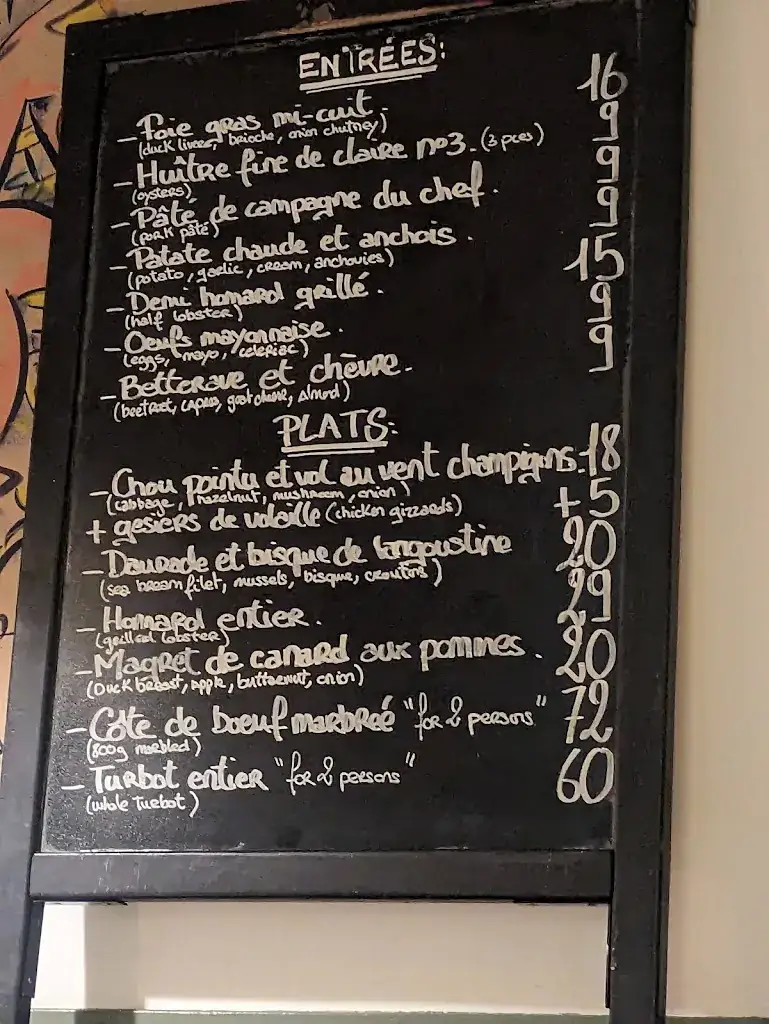 ENTRÉES:
- Foie gras mi-cuit. 16
(duck liver, brioche, onion chutney)
- Huître fine de claire n°3. (3 pces) 9
(oysters)
- Pâté de campagne du chef. 9
(pork pâté)
- Patate chaude et anchois. 9
(potato, garlic, cream, anchovies)
- Demi homard grillé. 15
(half lobster)
- Oeufs mayonnaise. 9
(eggs, mayo, celeriac)
- Betterave et chèvre. 9
(beetroot, capers, goat cheese, Almond)
PLATS:
- Chou pointu et vol au vent champigons. 18
(cabbage, hazelnut, mushroom, onion)
+ gesiers de volaille (chicken gizzards) +5
- Daurade et bisque de langoustine 20
(sea bream filet, mussels, bisque, croutons)
- Homard entier. 29
(grilled lobster)
- Magret de canard aux pommes. 20
(Duck breast, apple, butternut, onion)
- Côte de boeuf marbreé "for 2 persons" 72
(800g marbled)
- Turbot entier "for 2 persons" 60
(whole Turbot)